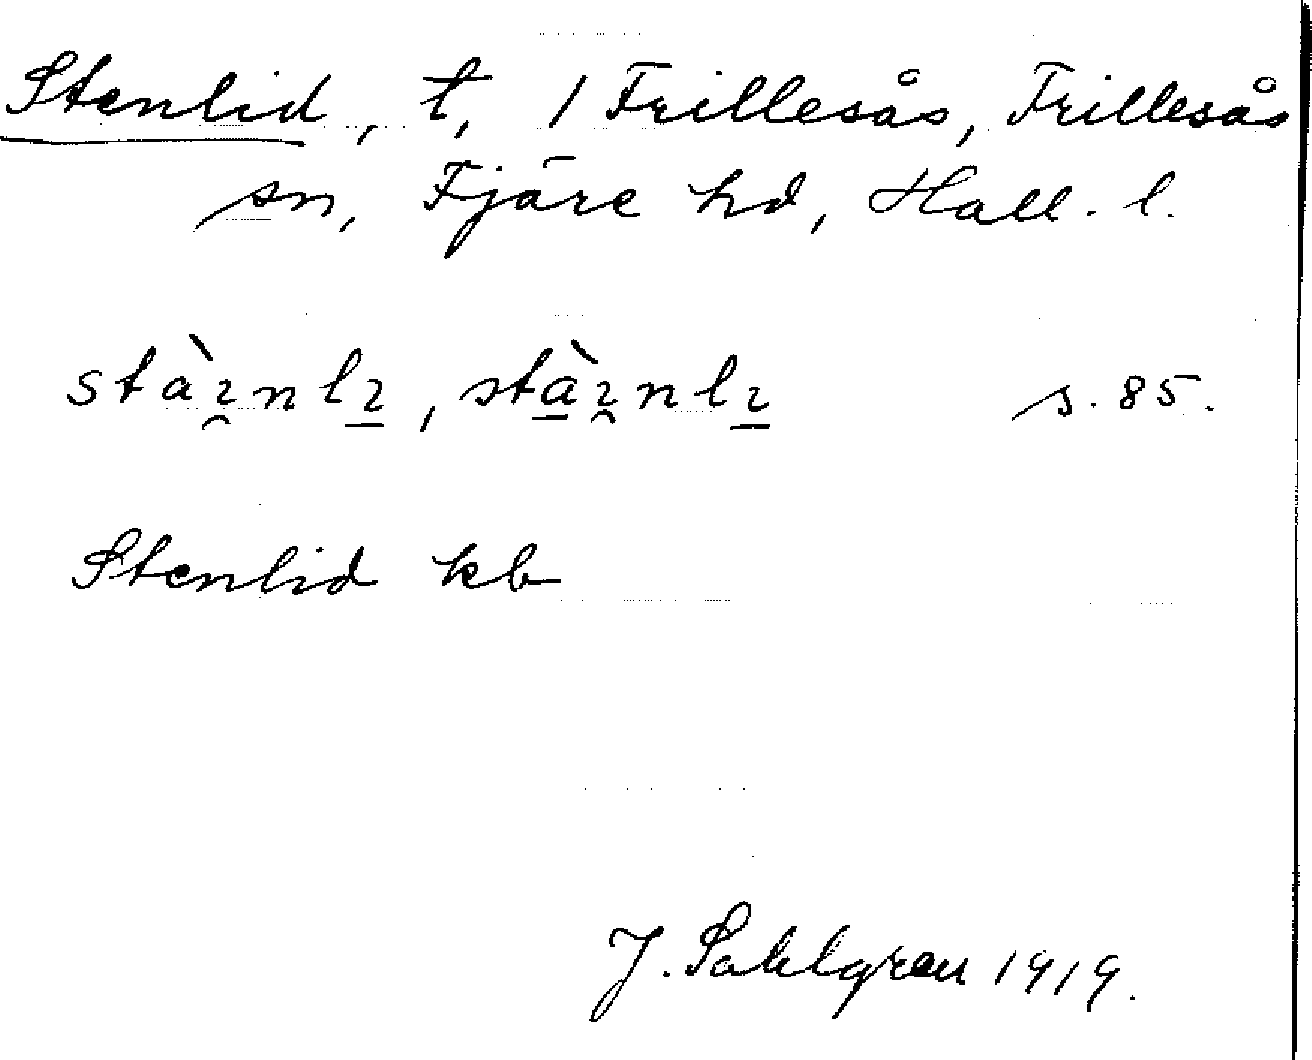 Stenlid, t, / Frillesås, Frillesås
sn, Fjäre hd, Hall. l.
s. 85.
Stenlid kb
J. Sahlgren 1919.